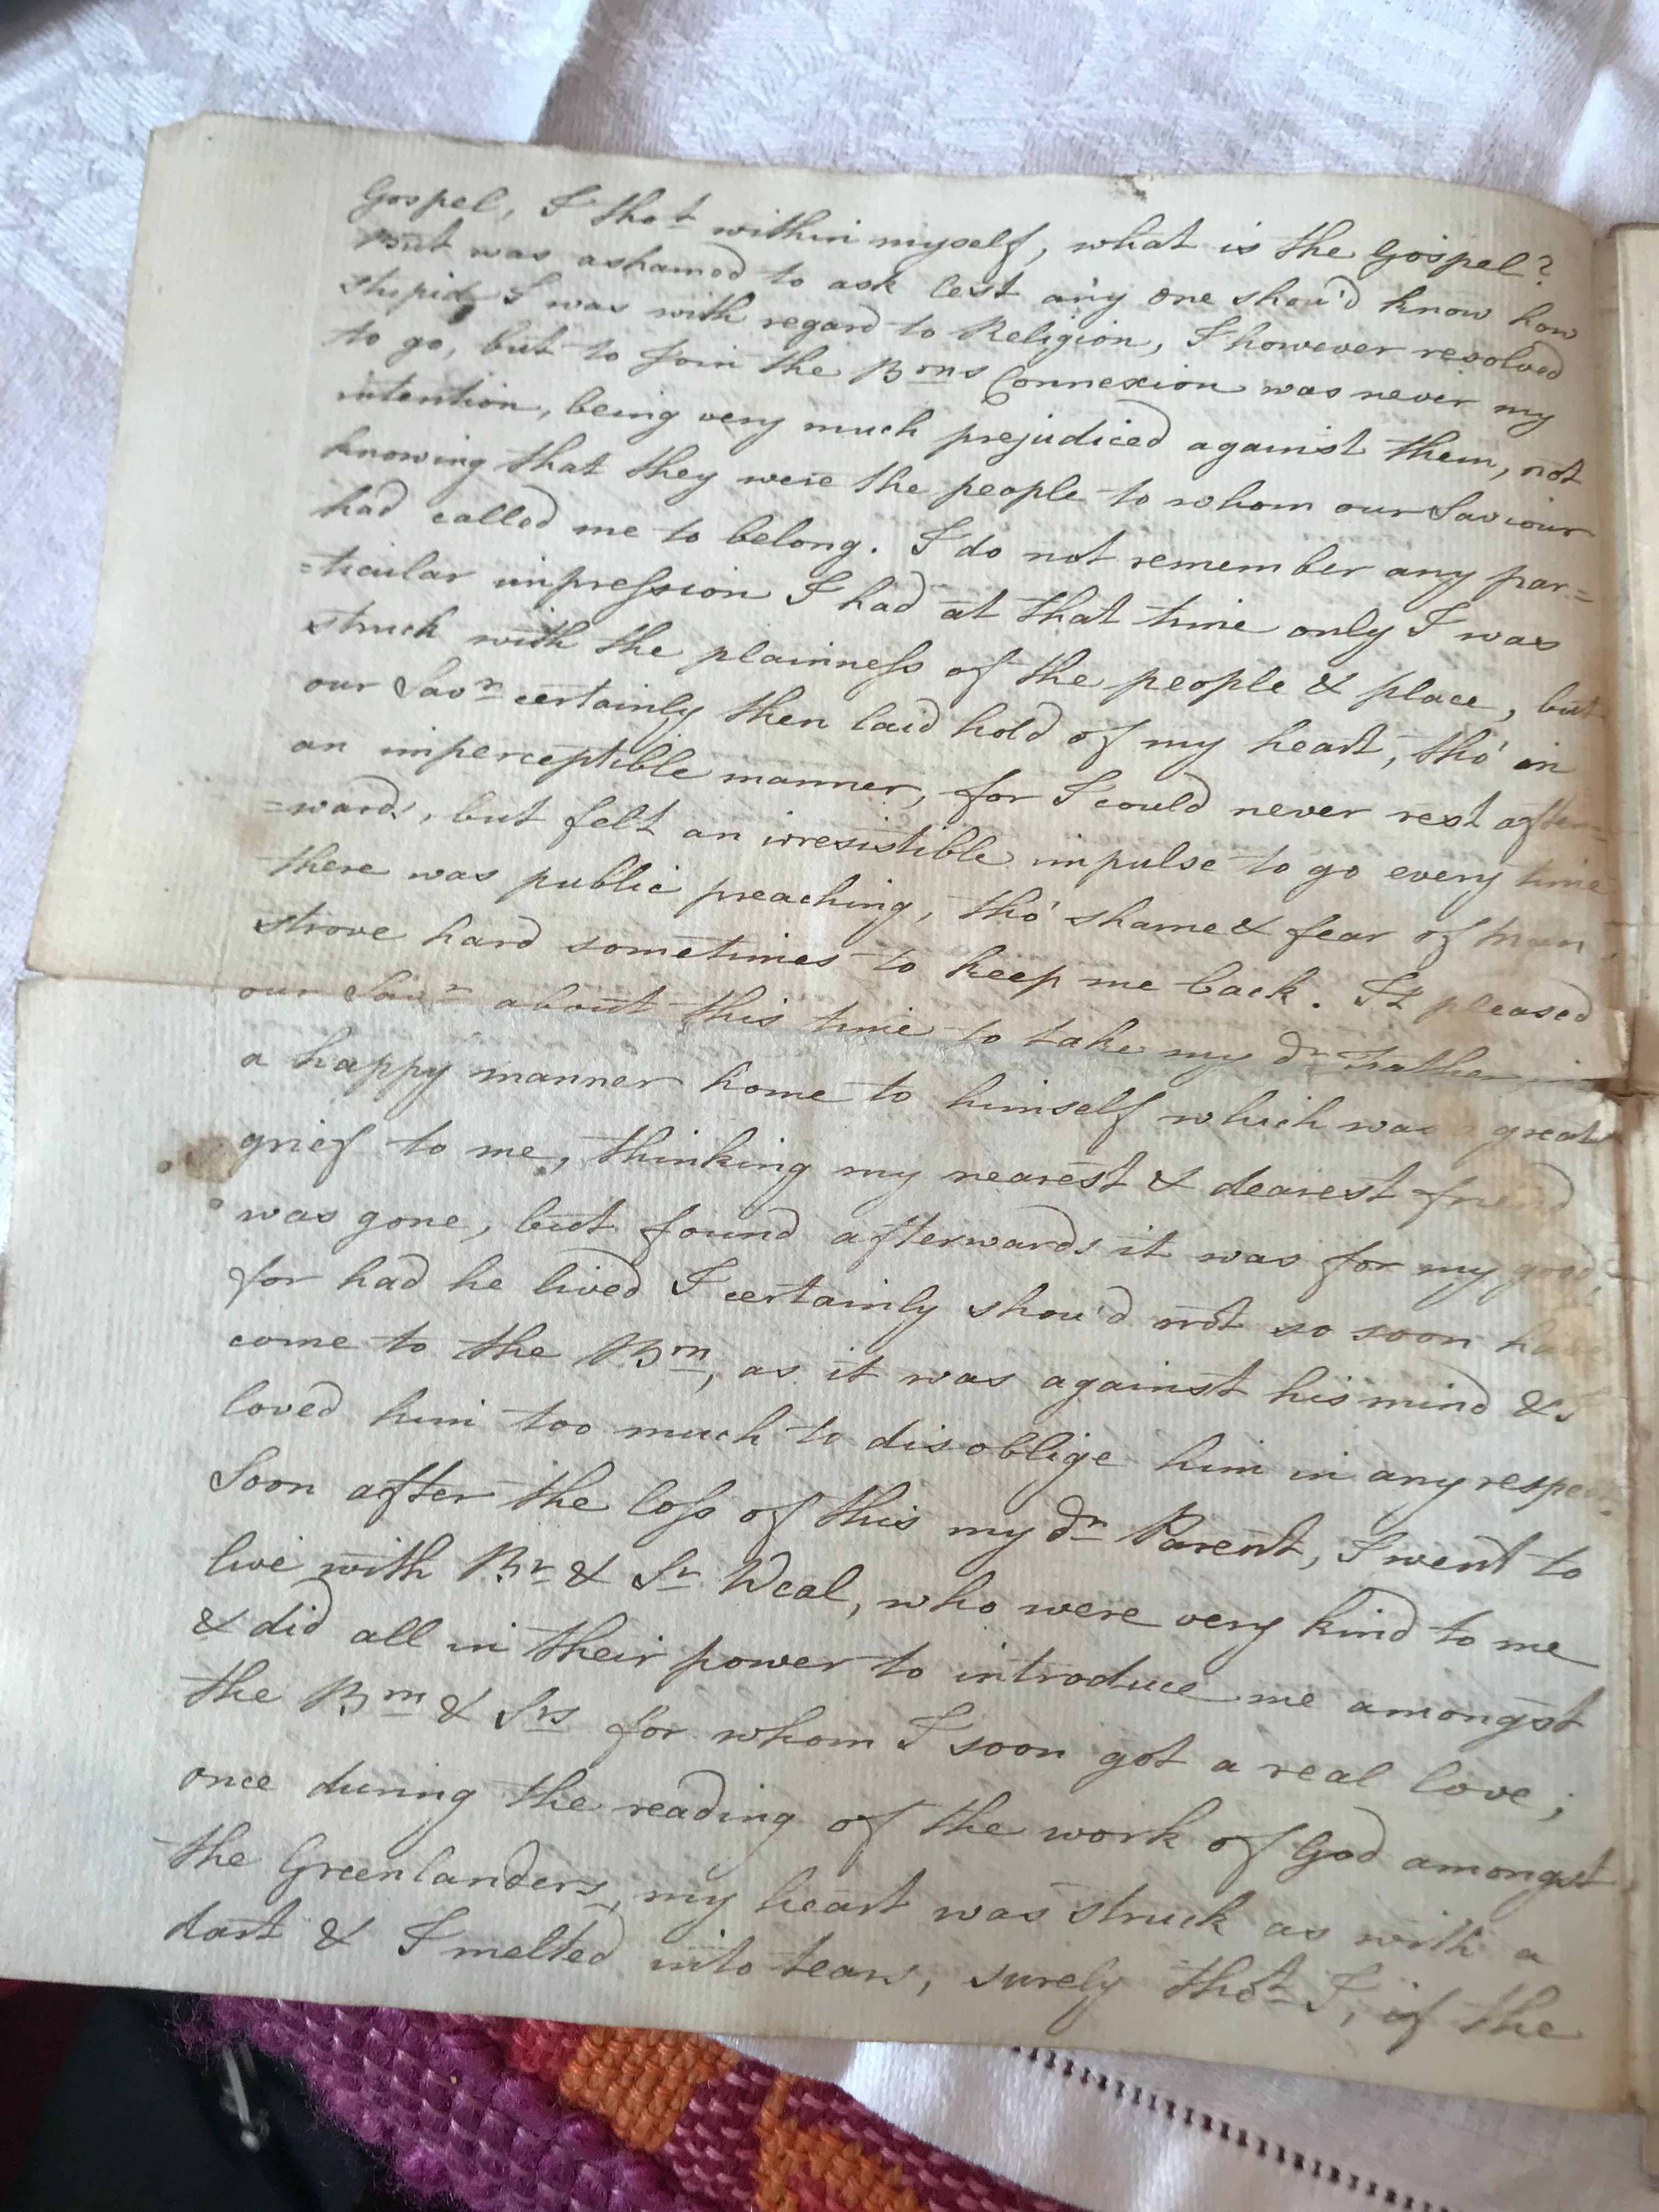 Gospel, I thot within myself, what is the Gospel?
but was ashamed to ask lest any one shou'd know how
stupid I was with regard to Religion, I however resolved
to go, but to join the Brns Connexion was never my
intention, being very much prejudiced against them, not
knowing that they were the people to whom our Saviour
had called me to belong. I do not remember any par=
=ticular impression I had at that time only I was
struck with the plainness of the people & place, but
our Savr certainly then laid hold of my heart, tho' in
an imperceptible manner, for I could never rest after=
=wards, but felt an irresistible impulse to go every time
there was public preaching, tho' shame & fear of man,
strove hard sometimes to keep me back. It pleased
our Savr about this time to take my dr Father in
a happy manner home to himself which was a great
grief to me, thinking my nearest & dearest friend
was gone, but found afterwards it was for my good,
for had he lived I certainly shou'd not so soon have
come to the Brn, as it was against his mind & I
loved him too much to disoblige him in any respect.
Soon after the loss of this my dr Parent, I went to
live with Br & Sr Weal, who were very kind to me
& did all in their power to introduce me amongst
the Brn & Srs for whom I soon got a real love;
once during the reading of the work of God amongst
the Greenlanders, my heart was struck as with a
dart & I melted into tears, surely thot I, if the